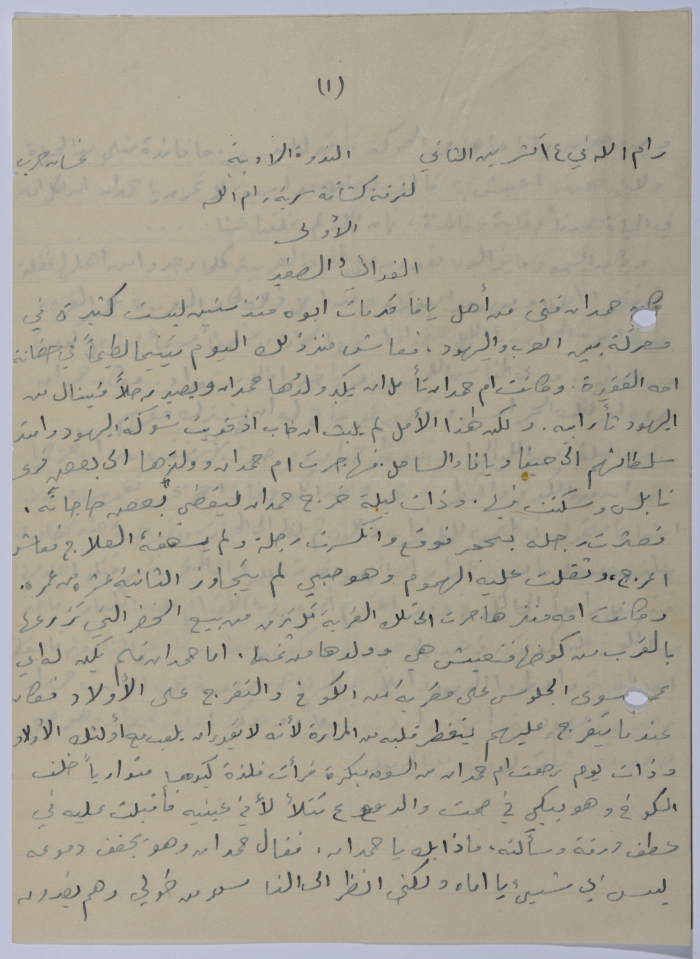 (١)
رام الله في ١٤ تشرين الثاني الندوة الادبية غسان حرب
لفرقة كشافة سرية رام الله
الأولى
الفدائي الصغير
كان حمدان فتى من أهل يافا قد مات ابوه منذ سنين ليست كثيرة في
معركة بين العرب واليهود، فعاش منذ ذلك اليوم يتيما لطيماً في حضانة
امه الفقيرة. وكانت ام حمدان تأمل ان يكبر ولدها حمدان ويصير رجلاً فينال من
اليهود ثأر ابيه. ولكن هذا الأمل لم يلبث ان خاب اذ قويت شوكة اليهود وامتد
سلطانهم الى حيفا ويافا والساحل. فهاجرت ام حمدان وولدها الى بعض قرى
نابلس وسكنت فيها. وذات ليلة خرج حمدان ليقضي بعض حاجاته،
فعثرت رجله بحجر فوقع وانكسرت رجله ولم يسعفه العلاج فعاش
اعرج، وثقلت عليه الهموم وهو صبي لم يتجاوز الثانية عشرة من عمره.
وكانت امه منذ هاجرت الى تلك القرية ترتزق من بيع الخضر التي تزرعها
بالقرب من كوخها فتعيش هي وولدها من ثمنها. اما حمدان فلم يكن له اي
عمل سوى الجلوس على مقربة من الكوخ والتفرج على الأولاد فكان
عندما يتفرج عليهم يتفطر قلبه من المرارة لأنه لا يقدر ان يلعب مع أولئك الأولاد
وذات يوم رجعت ام حمدان من السوق مبكرة فرأت فلذة كبدها متوارياً خلف
الكوخ وهو يبكي في صمت والدموع تتلألأ في عينيه فأقبلت عليه في
عطف ورقة وسألته، ماذا بك يا حمدان، فقال حمدان وهو يجفف دموعه
ليس بي شيئ يا اماه ولكني انظر الى الناس من حولي وهم يغدون